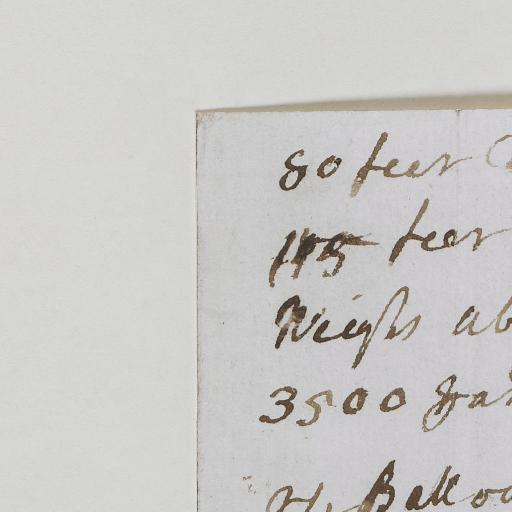 80 feet
115 feet
Weighs ab
3500
Balloo